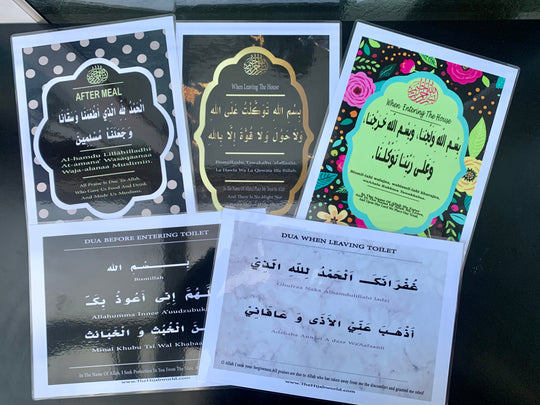 AFTER MEAL
الْحَمْدُ لِلّٰهِ الَّذِي أَطْعَمَنَا وَسَقَانَا
وَجَعَلَنَا مُسْلِمِيْنَ
Al-hamdu Lillâhilladhi
At-amana' Wasaqaanaa
Waja-alanaa Muslimin.
All Praise Is Due To Allah
Who Gave Us Food And Drink
And Made Us Muslims
When Leaving The House
بِسْمِ اللّٰهِ تَوَكَّلْتُ عَلَى اللّٰهِ
وَلَا حَوْلَ وَلَا قُوَّةَ إِلَّا بِاللّٰهِ
Bismillaahi, Tawakaltu 'Alallaahi,
La Hawla Wa La Quwwata Illa Billah.
In The Name Of Allah I Place My Trust In Allah
And There Is No Might Nor
When Entering The House
بِسْمِ اللهِ وَلَجْنَا، وَبِسْمِ اللهِ خَرَجْنَا
وَعَلَى رَبِّنَا تَوَكَّلْنَا
In The Name Of Allah We Enter
DUA BEFORE ENTERING TOILET
بِسْمِ اللّٰه
Bismillah
لّٰهُمَّ إِنِّى أَعُوذُ بِكَ
Allahumma Innee A'uudzubuk
نَ الْخُبُثِ وَ الْخَبَائث
Minal Khubu Tsi Wal Khabaa
In The Name Of Allah, I Seek Protection In You From The Male
www.TheHijabworld.com
DUA WHEN LEAVING TOILET
غُفْرَانَكَ اَلْحَمْدُ لِلّٰهِ الَّذِيْ
Ghufraa Naka Alhamdulillahi ladzi
أَذْهَبَ عَنِّيْ الْأَذَى وَ عَافَانِيْ
Adzhaba Annnil A dzaa Wa'Aafaanii
O Allah I seek your forgiveness All praises are due to Allah who has taken away from me the discomfort and granted me relief
www.TheHijabworld.com